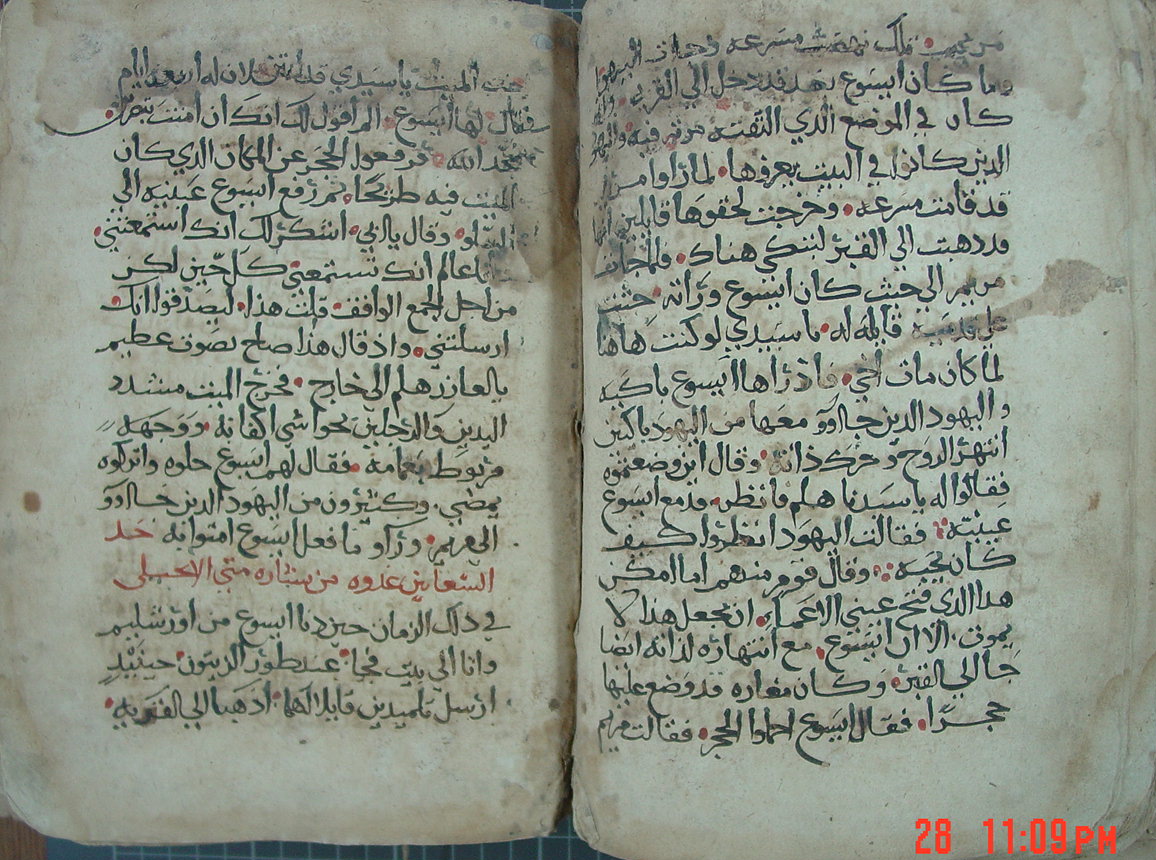 من نجيب تلك نهضت مسرعة وجات اليها
وما كان ايسوع بعد قد دخل الي القرية
كان في الموضع الذي التقته مرتا فيه واليهود
الذين كانوا في البيت يعزوها لما راوا مريم
قد قامت مسرعة وخرجت لحقوها قايلين انها
قد دهبت الي القبر لتبكي هناك فلما جات
مريم الي حيث كان ايسوع وراته جثت
علي قدميه قايله له ياسيدي لو كنت هاهنا
لما كان مات اخي فاذ راها ايسوع باكيه
واليهود الدين جااوو معها من اليهود باكين
انتهر الروح وحرك ذاته وقال اين وضعتموه
فقالوا له ياسيدنا هلم فانظر فدمع ايسوع
عينيه فقالت اليهود انظروا كيف
كان يحبه وقال قوم منهم اما امكن
هدا الدي فتح عيني الاعما ان يجعل هدا لا
يموت الا ان ايسوع مع انتهاره لداته ايضا
جا الي القبر وكان مغاره قد وضع عليها
حجرا فقال ايسوع احملوا الحجر فقالت مريم
اخت الميت ياسيدي قد انتن لان له اربعة ايام
فقال لها ايسوع الم اقول لك انك ان امنت تنظري
مجد الله فرفعوا الحجر عن المكان الدي كان
الميت فيه طريحا ثم رفع ايسوع عينيه الي
السلو وقال ياابي اشكر لك انك استمعتني
عالم انك تستمعني كل حين لكن
من اجل الجمع الواقف قلت هذا ليصدقوا انك
ارسلتني واذ قال هذا صاح بصوت عظيم
يالعازر هلم الي خارج فخرج الميت مشدد
اليدين والرجلين بحواشي اكفانه ووجهه
مربوط بعمامه فقال لهم ايسوع حلوه واتركوه
يمضي وكثيرون من اليهود الدين جااوو
الي مريم وراو ما فعل ايسوع امنوا به حد
الشعانين غدوه من بشاره متي الانجيلي
في دلك الزمان حين دنا ايسوع من اورشليم
واتا الي بيت فجا عند طور الزيتون حينيد
ارسل تلميدين قايلا لهما ادهبا الي القريه
28 11:09 PM